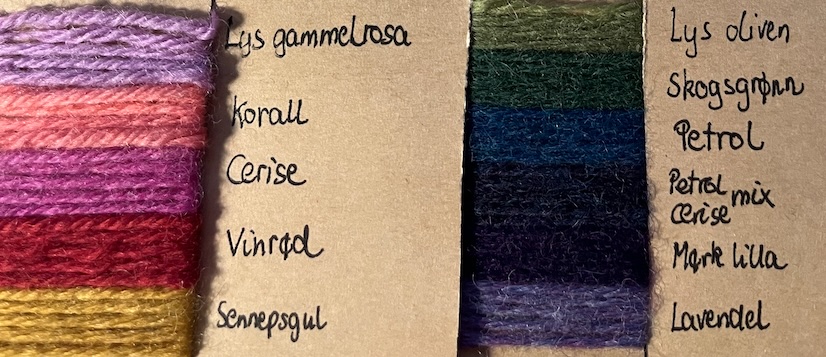 Lys gammelrosa
Korall
Cerise
Vinrød
Sennepsgul
Lys oliven
Skogsgrønn
Petrol
Petrol mix
cerise
Mørk lilla
Lavendel